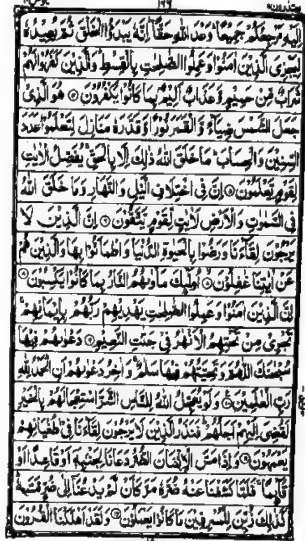 اِلَیْهِ مَرْجِعُكُمْ جَمِیْعًا وَعْدَ اللّٰهِ حَقًّا اِنَّهٗ یَبْدَؤُا الْخَلْقَ ثُمَّ یُعِیْدُهٗ
لِیَجْزِیَ الَّذِیْنَ اٰمَنُوْا وَعَمِلُوا الصّٰلِحٰتِ بِالْقِسْطِ وَالَّذِیْنَ كَفَرُوْا لَهُمْ
شَرَابٌ مِّنْ حَمِیْمٍ وَّعَذَابٌ اَلِیْمٌۢ بِمَا كَانُوْا یَكْفُرُوْنَ هُوَ الَّذِیْ
جَعَلَ الشَّمْسَ ضِیَآءً وَّالْقَمَرَ نُوْرًا وَّقَدَّرَهٗ مَنَازِلَ لِتَعْلَمُوْا عَدَدَ
السِّنِیْنَ وَالْحِسَابَ مَا خَلَقَ اللّٰهُ ذٰلِكَ اِلَّا بِالْحَقِّ یُفَصِّلُ الْاٰیٰتِ
لِقَوْمٍ یَّعْلَمُوْنَ اِنَّ فِی اخْتِلَافِ الَّیْلِ وَالنَّهَارِ وَمَا خَلَقَ اللّٰهُ
فِی السَّمٰوٰتِ وَالْاَرْضِ لَاٰیٰتٍ لِّقَوْمٍ یَّتَّقُوْنَ اِنَّ الَّذِیْنَ لَا
یَرْجُوْنَ لِقَآءَنَا وَرَضُوْا بِالْحَیٰوةِ الدُّنْیَا وَاطْمَاَنُّوْا بِهَا وَالَّذِیْنَ هُمْ
عَنْ اٰیٰتِنَا غٰفِلُوْنَ اُولٰٓئِكَ مَاْوٰىهُمُ النَّارُ بِمَا كَانُوْا یَكْسِبُوْنَ
اِنَّ الَّذِیْنَ اٰمَنُوْا وَعَمِلُوا الصّٰلِحٰتِ یَهْدِیْهِمْ رَبُّهُمْ بِاِیْمَانِهِمْ
تَجْرِیْ مِنْ تَحْتِهِمُ الْاَنْهٰرُ فِیْ جَنّٰتِ النَّعِیْمِ دَعْوٰىهُمْ فِیْهَا
سُبْحٰنَكَ اللّٰهُمَّ وَتَحِیَّتُهُمْ فِیْهَا سَلٰمٌ وَاٰخِرُ دَعْوٰىهُمْ اَنِ الْحَمْدُ لِلّٰهِ
رَبِّ الْعٰلَمِیْنَ وَلَوْ یُعَجِّلُ اللّٰهُ لِلنَّاسِ الشَّرَّ اسْتِعْجَالَهُمْ بِالْخَیْرِ
لَقُضِیَ اِلَیْهِمْ اَجَلُهُمْ فَنَذَرُ الَّذِیْنَ لَا یَرْجُوْنَ لِقَآءَنَا فِیْ طُغْیَانِهِمْ
یَعْمَهُوْنَ وَاِذَا مَسَّ الْاِنْسَانَ الضُّرُّ دَعَانَا لِجَنْۢبِهٖٓ اَوْ قَاعِدًا اَوْ
قَآئِمًا فَلَمَّا كَشَفْنَا عَنْهُ ضُرَّهٗ مَرَّ كَاَنْ لَّمْ یَدْعُنَآ اِلٰی ضُرٍّ مَّسَّهٗ
كَذٰلِكَ زُیِّنَ لِلْمُسْرِفِیْنَ مَا كَانُوْا یَعْمَلُوْنَ وَلَقَدْ اَهْلَكْنَا الْقُرُوْنَ